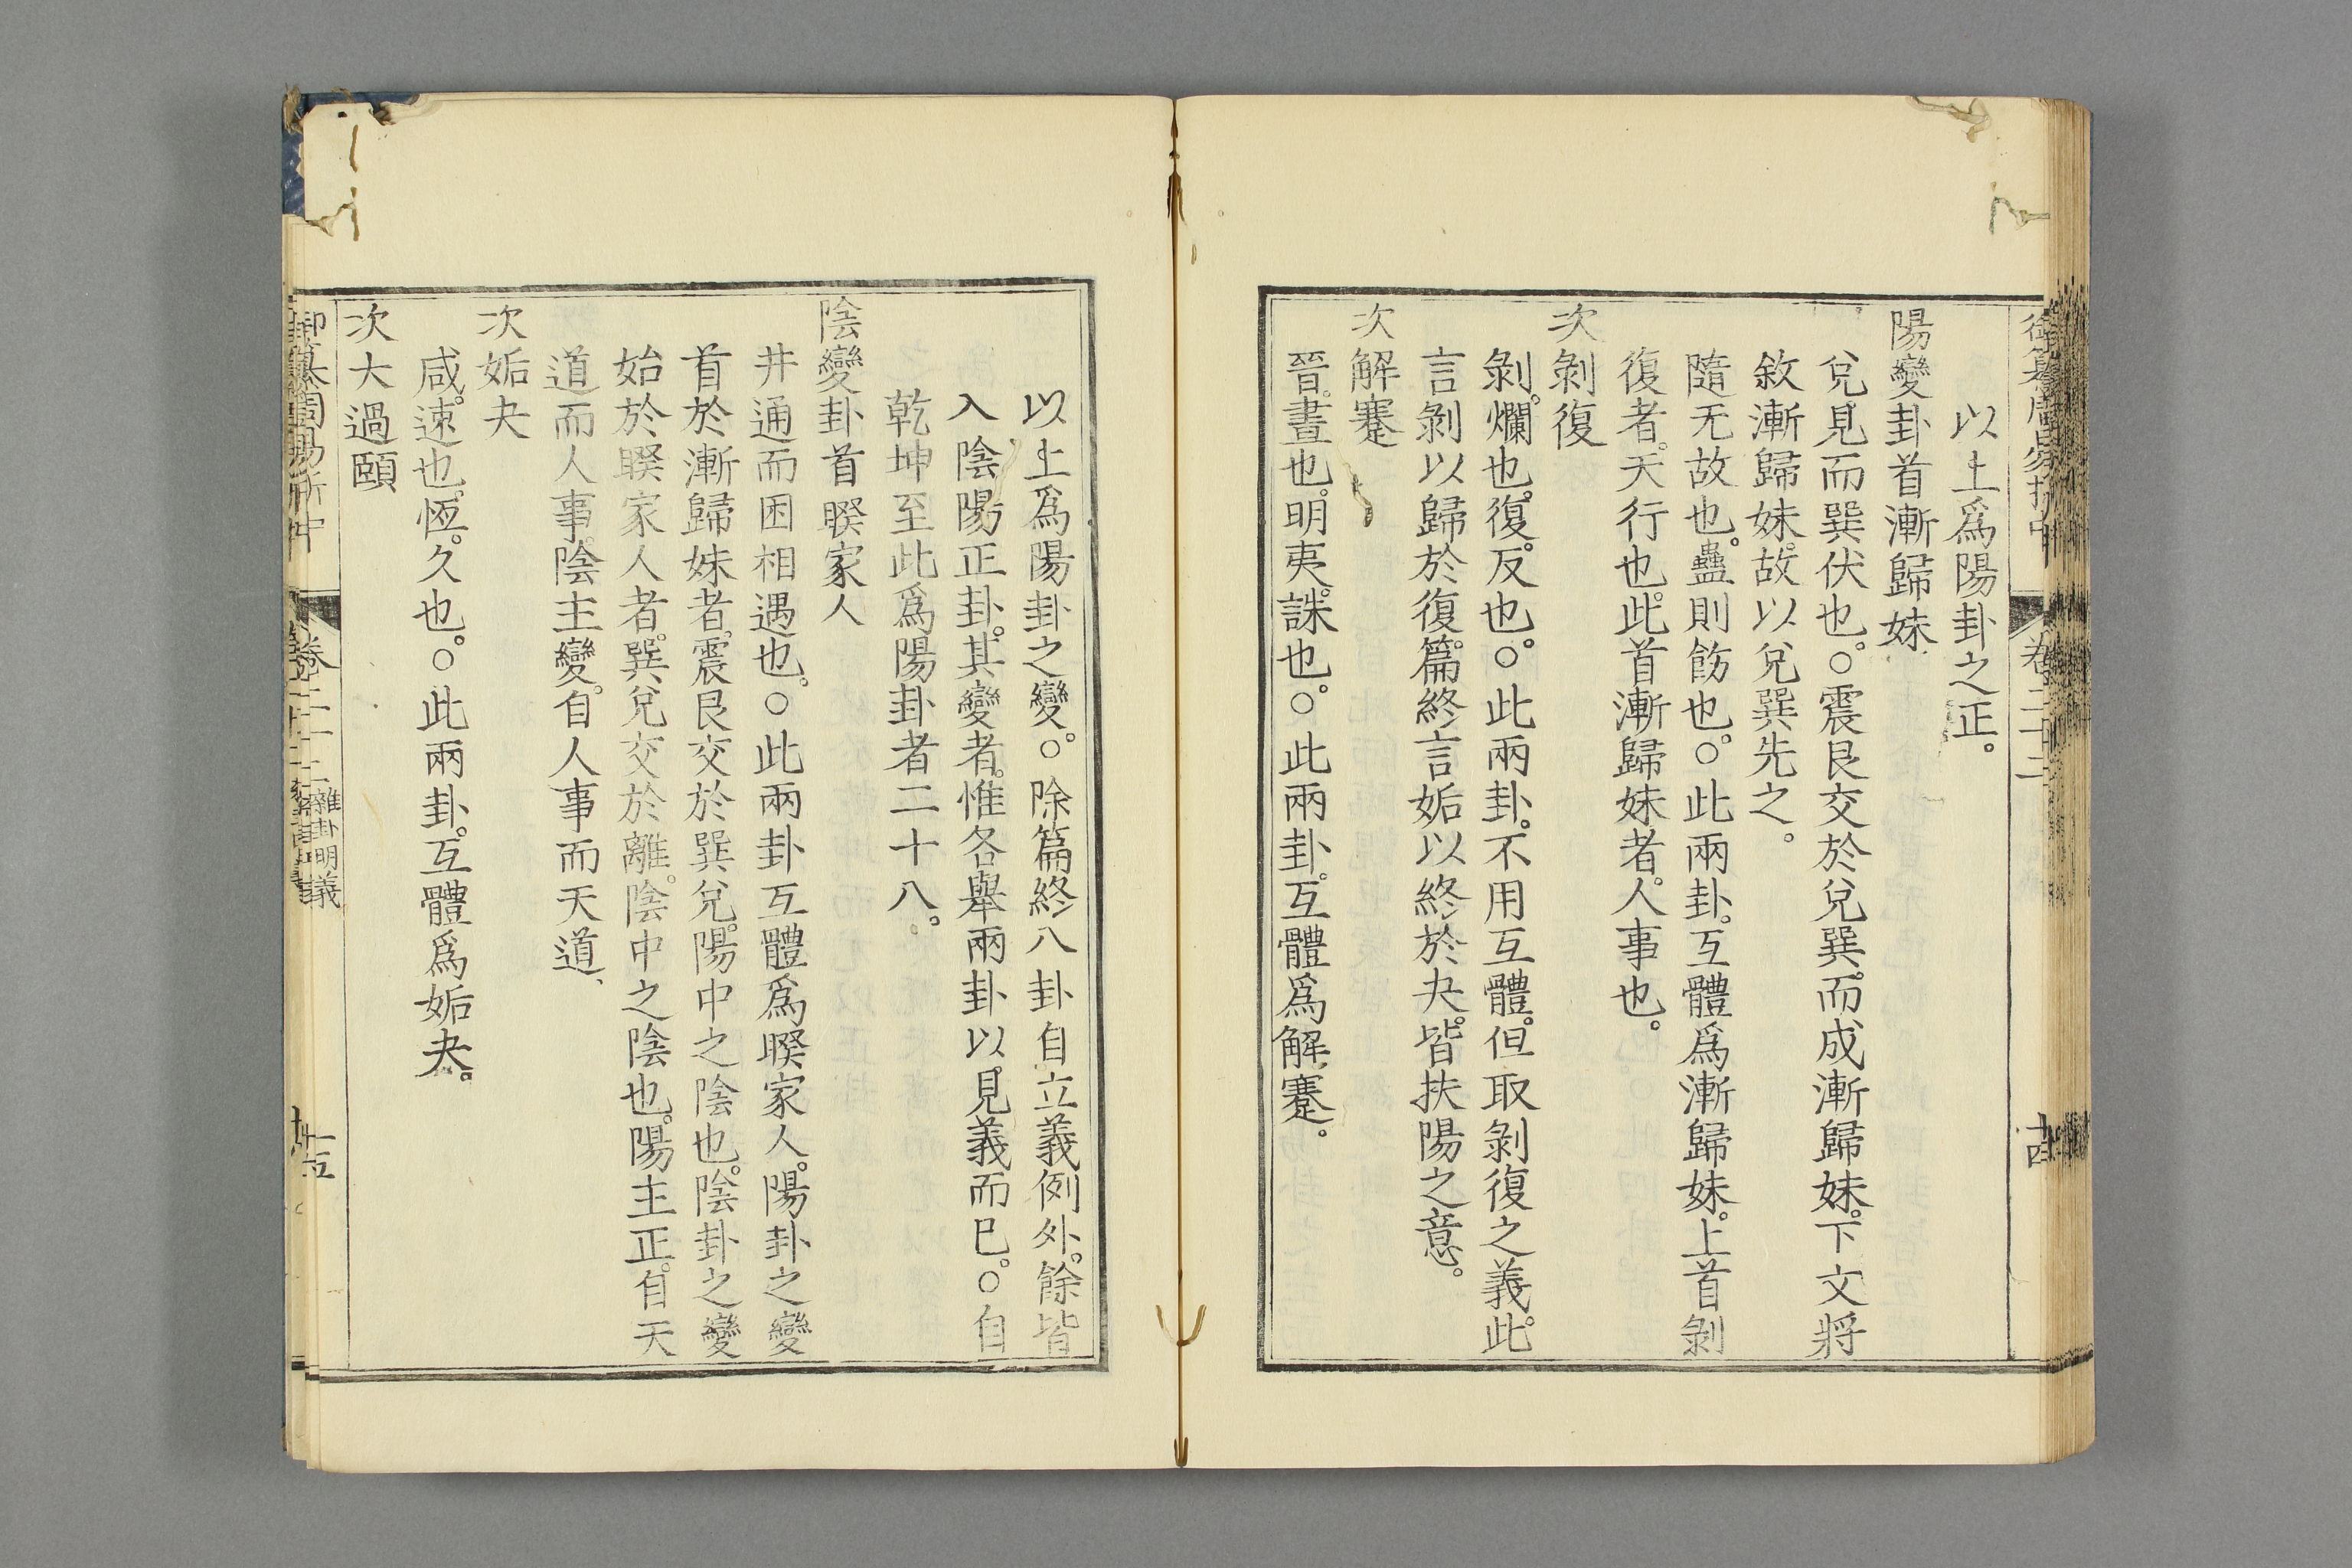 以上爲陽卦之正。
陽變卦首漸歸妹
兌。見而巽伏也。○震艮交於兌巽。而成漸歸妹。下文將
敘漸歸妹。故以兌巽先之。
隨无故也。蠱則飭也。○此兩卦。互體爲漸歸妹。上首剝
復者。天行也。此首漸歸妹者。人事也。
次剝復
剝。爛也。復。反也。○此兩卦。不用互體。但取剝復之義。此
言剝以歸於復。篇終言姤以終於夬。皆扶陽之意。
次解蹇
晉。晝也。明夷。誅也。○此兩卦。互體爲解蹇。
卷二十二
十四
以上爲陽卦之變。○除篇終八卦自立義例外。餘皆
入陰陽正卦。其變者。惟各舉兩卦以見義而已。○自
乾坤至此爲陽卦者二十八。
陰變卦首睽家人
井通而困相遇也。○此兩卦互體爲睽家人。陽卦之變
首於漸歸妹者。震艮交於巽兌。陽中之陰也。陰卦之變
始於睽家人者。巽兌交於離。陰中之陰也。陽主正。自天
道而人事。陰主變。自人事而天道、
次姤夬
咸。速也。恆。久也。○此兩卦。互體爲姤夬。
次大過頤
御纂周易折中
卷二十二 雜卦明義
十五